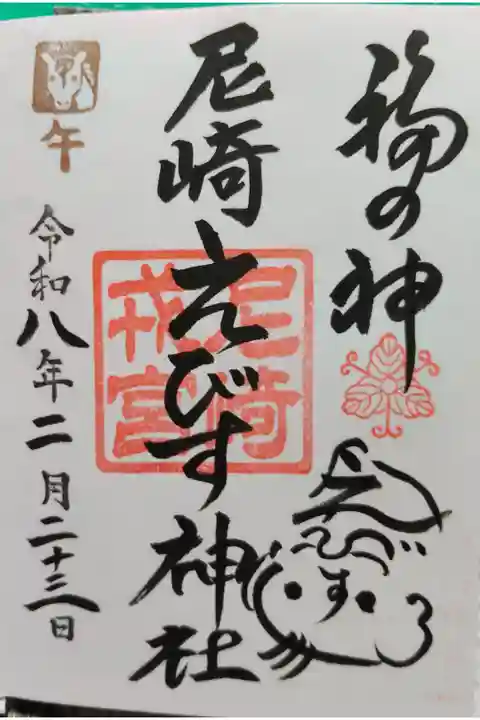 福の神
尼崎えびす神社
尼崎
戎宮
えびす
午
令和八年二月二十三日